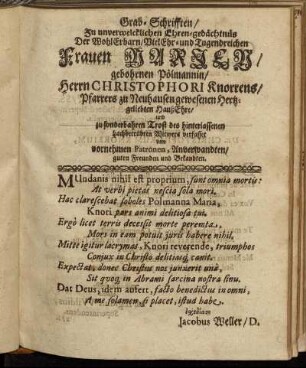 Grab-Schrifften/
Zu unverwelcklichen Ehren-gedächtnüs
Der WohlErbarn/VielEhr-und Tugendreichen
Frauen MARIEN/
gebohrnen Pölmannin/
Herrn CHRISTOPHORI Knorrens/
Pfarrers zu Neuhausen gewesenen Hertz-
geliebten HaußEhre/
und
zu sonderbahren Trost des hinterlassenen
hochbetrübten Witwers verfasset
von
vornehmen Patronen, Anverwandten/
guten Freunden und Bekandten.
MUndanis nihil est proprium, sunt omnia mortis:
At verbi pietas nescia sola mori.
Hac clarescebat soboles Polmanna Maria,
Knori pars animi delitiosa tui.
Ergò licet terris decessit morte peremta,
Mors in eam potuit juris habere nihil.
Mitte igitur lacrymas, Knori reverende, triumphos
Conjux in Christo delitiasq; canit.
Expectat, donec Christus nos junxerit unà,
Sit quoq; in Abrami sarcina nostra sinu.
Dat Deus, idem aufert, facto benedictus in omni,
A me solamen, si placet, istud habe.
Jacobus Weller/D.